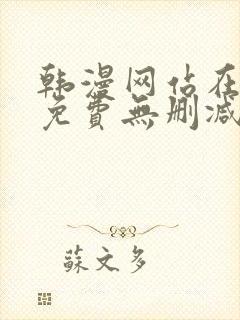 韩漫网站在
免費無删减
蘇文多